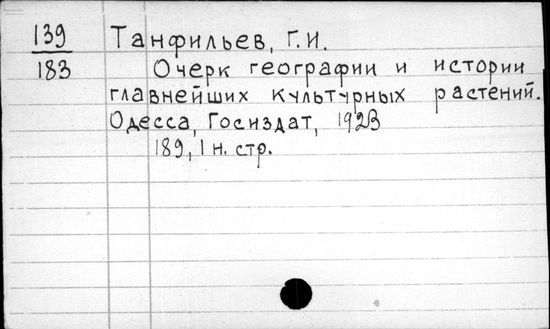 139 Танфильев, Г.И.
183 Очерк географии и истории
главнейших культурных растений.
Одесса, Госиздат, 1923
189, 1 н. стр.